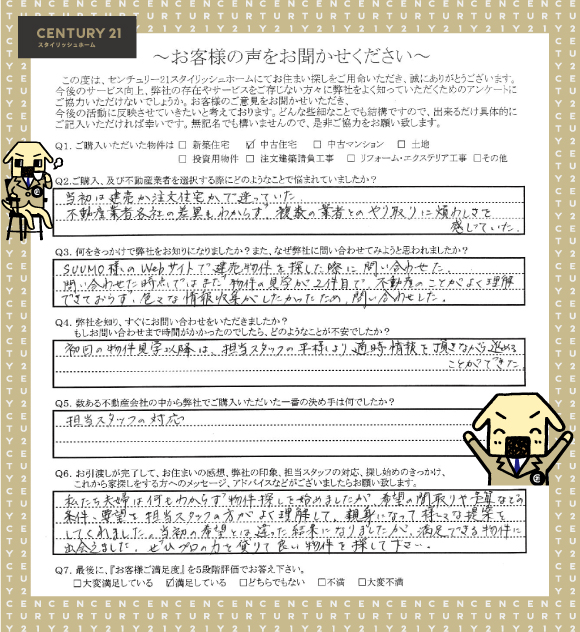 CENTURY 21
スタイリッシュホーム
～お客様の声をお聞かせください～
この度は、センチュリー21スタイリッシュホームにてお住まい探しをご用命いただき、誠にありがとうございます。
今後のサービス向上、弊社の存在やサービスをご存じない方々に弊社をよく知っていただくためのアンケートに
ご協力いただけないでしょうか。お客様のご意見をお聞かせいただき、
今後の活動に反映させていきたいと考えております。どんな些細なことでも結構ですので、出来るだけ具体的に
ご記入いただければ幸いです。無記名でも構いませんので、是非ご協力をお願い致します。
Q1. ご購入いただいた物件は □ 新築住宅 ☑ 中古住宅 □ 中古マンション □ 土地
□ 投資用物件 □ 注文建築請負工事 □ リフォーム・エクステリア工事 □その他
Q2.ご購入、及び不動産業者を選択する際にどのようなことで悩まれていましたか?
当初は建売か注文住宅かで迷っていた
不動産業者各社の差異もわからず、複数の業者とのやり取りに煩わしさを
感じていた。
Q3. 何をきっかけで弊社をお知りになりましたか?また、なぜ弊社に問い合わせてみようと思われましたか?
SUUMO様のWebサイトで建売物件を探した際に問い合わせた。
問い合わせた時点ではまだ物件の見学が2件目で、不動産のことがよく理解
できておらず、色々な情報収集がしたかったため、問い合わせした。
Q4. 弊社を知り、すぐにお問い合わせをいただきましたか?
もしお問い合わせまで時間がかかったのでしたら、どのようなことが不安でしたか?
初回の物件見学以降は、担当スタッフの平様より適時情報を頂きながら進める
ことができた。
Q5. 数ある不動産会社の中から弊社でご購入いただいた一番の決め手は何でしたか?
担当スタッフの対応
Q6. お引渡しが完了して、お住まいの感想、弊社の印象、担当スタッフの対応、探し始めのきっかけ、
これから家探しをする方へのメッセージ、アドバイスなどがございましたらお願い致します。
私たち夫婦は何もわからず物件探しを始めましたが、希望の間取りや予算などの
条件、要望を担当スタッフの方がよく理解して、親身になって様々な提案を
してくれました。当初の希望とは違った結果になりましたが、満足できる物件に
出会えました。ぜひプロの力を借りて良い物件を探して下さい。
Q7. 最後に、『お客様ご満足度』を5段階評価でお答え下さい。
□大変満足している ☑満足している □どちらでもない □不満 □大変不満